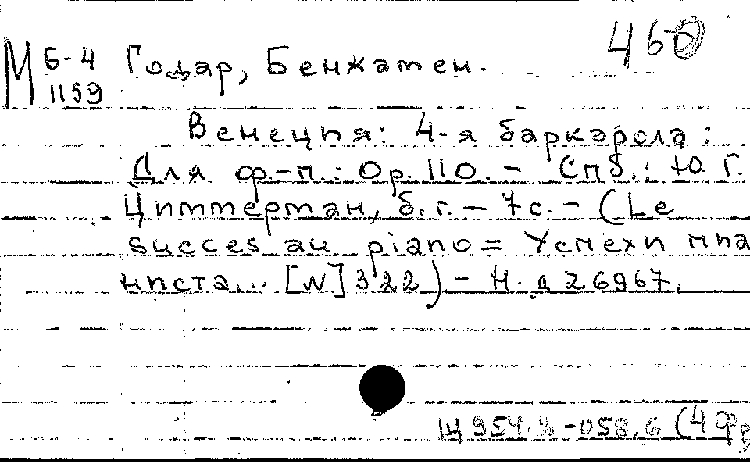 460
М Б-4 Годар, Бенжамен.
1159
Венеция: 4-я баркарола:
Для ф.-п.: Ор. 110. - Спб.: Ю. Г.
Циммерман, б. г. - 7 с. - (Le
succes au piano = Успехи пиа
ниста... [N] 322) - Н. д Z 6967.
Щ 954.4-058.6 (4 Фр